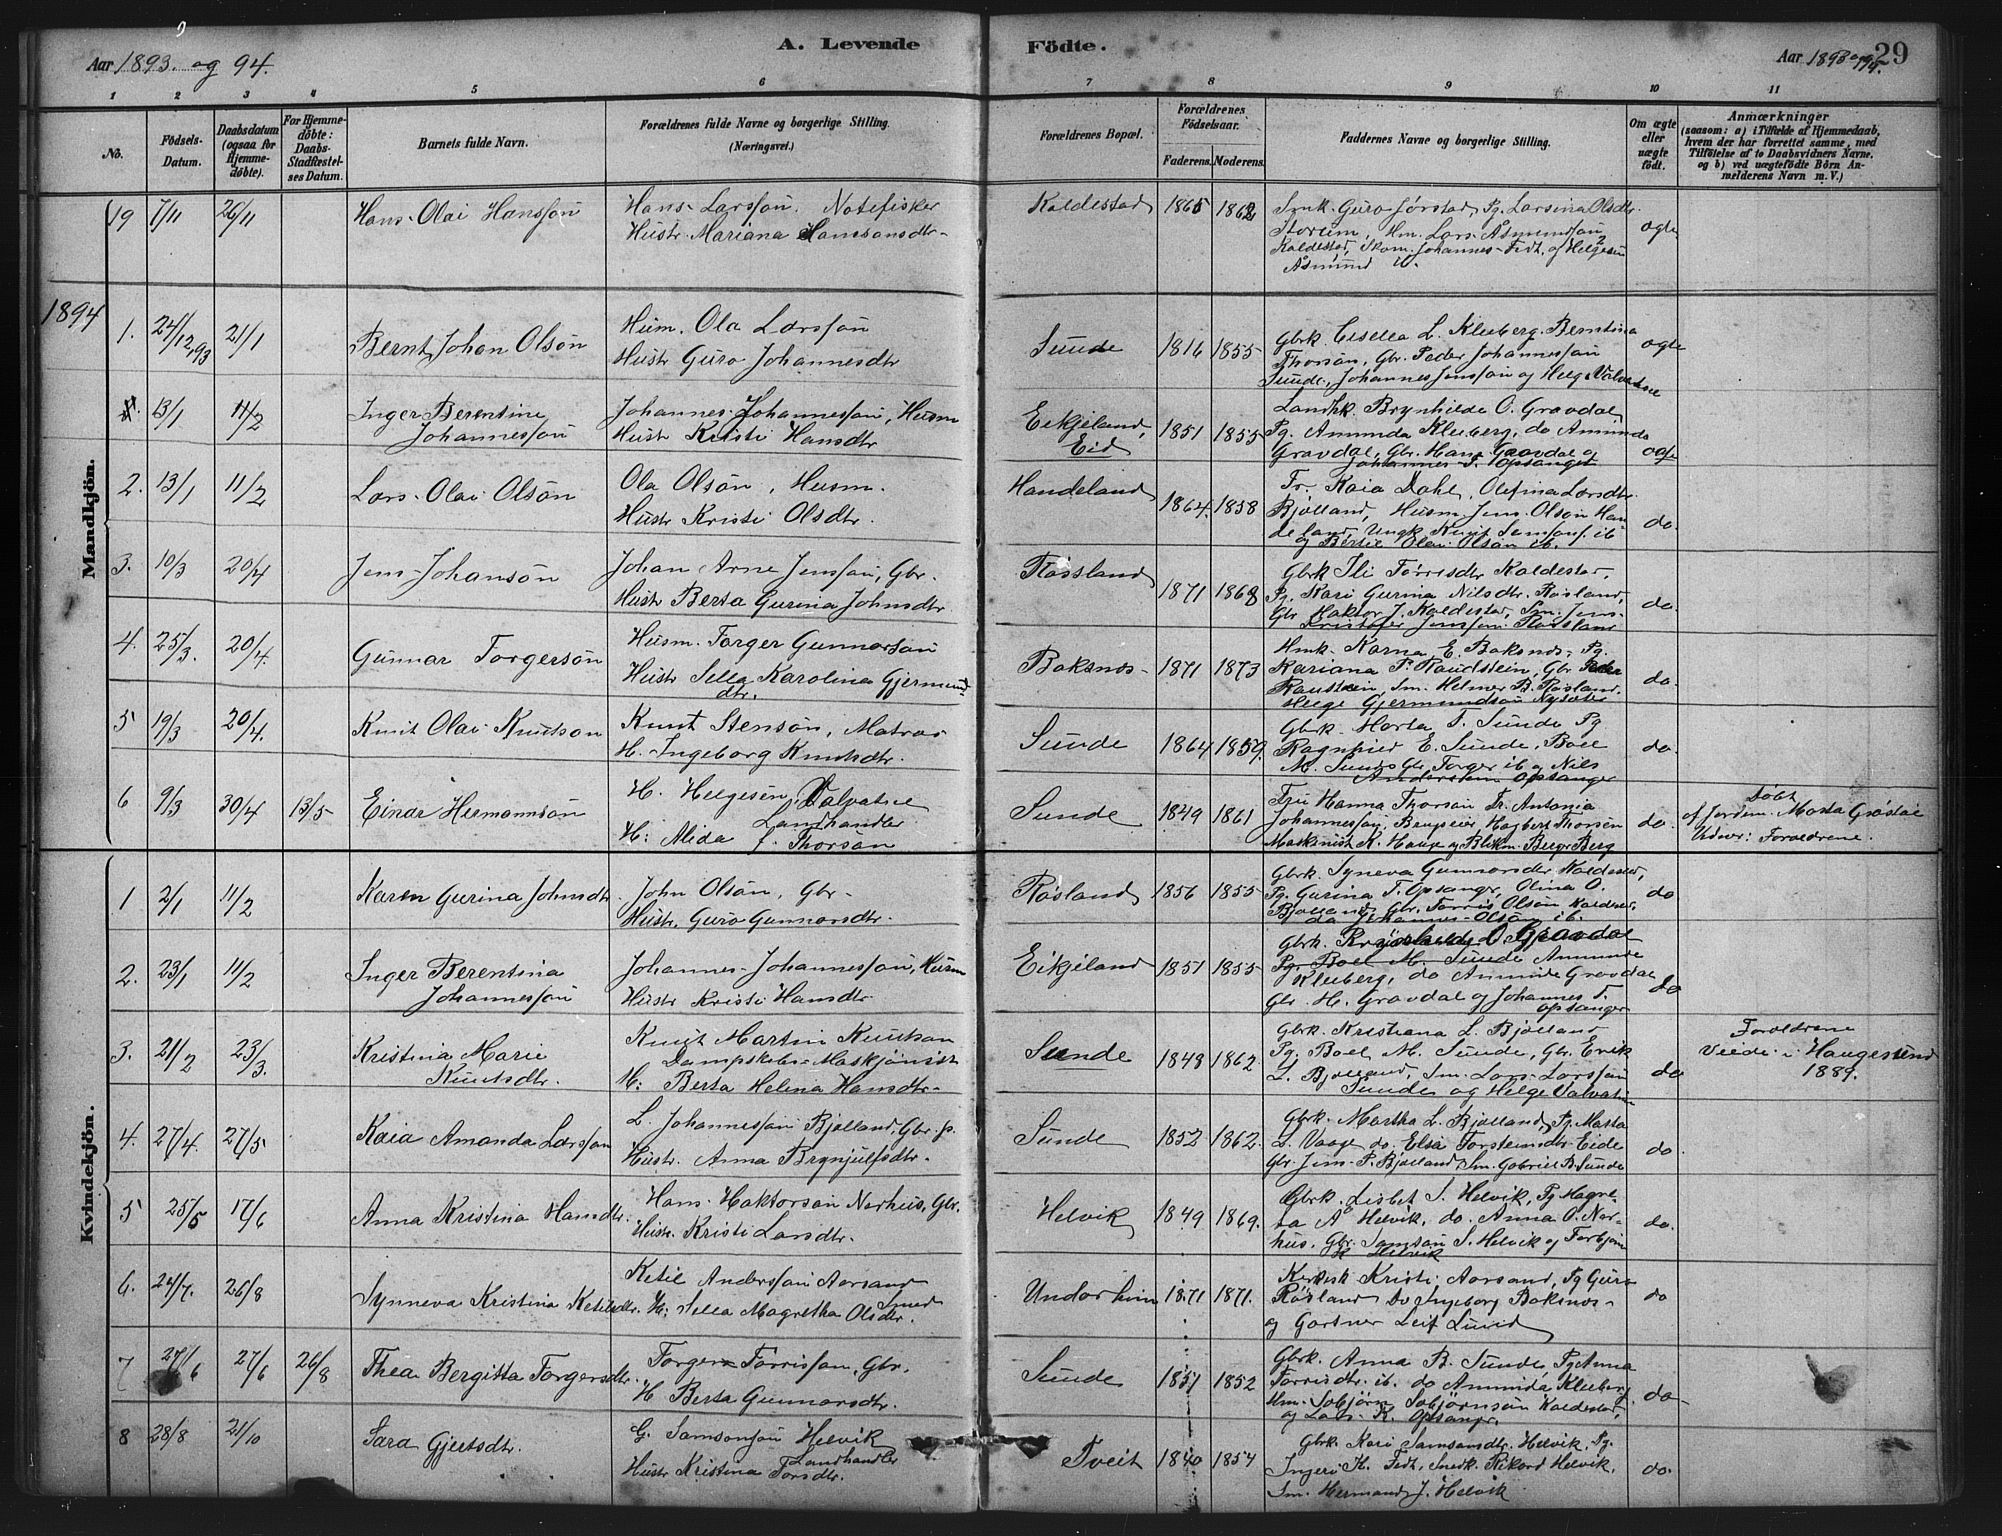 Aar 1893. og 94.
A. Levende Födte.
Aar 1893 og 94.
29
1 2 3 4 5 6 7 8 9 10 11
No.
Födsels-Datum.
Daabsdatum (ogsaa for Hjemmedöbte).
For Hjemmedöbte: Daabs-Stadfæstelses Datum.
Barnets fulde Navn.
Forældrenes fulde Navne og borgerlige Stilling.
(Næringsvei.)
Forældrenes Bopæl.
Forældrenes Födselsaar.
Faderens. Moderens.
Faddernes Navne og borgerlige Stilling.
Om ægte eller uægte födt.
Anmærkninger
(saasom: a) i Tilfælde af Hjemmedaab, hvem der har forrettet samme, med Tilföielse af to Daabsvidners Navne, og b) ved uægtefödte Börn Anmelderens Navn m. V.)
19 7/11 26/11 Hans Olai Hanssøn
Hans Larssøn. Notefisker
Hustr. Mariana Hansdtr.
Koldestad 1865 1862
Smk. Guro Jørstad, Pg. Larsina Olsdtr.
Storeim, Hm. Lars Asmundsøn
Koldestad, Skom. Johannes Fedt, og Helgesen
Åsmund ib.
ægte
1894
Mandkjön.
1. 24/12 93 21/1 Bernt Johan Olsøn
Husm. Ola Larssøn
Hustr Guro Johannesdtr
Sunde 1816 1855
Gbrk. Eselea L. Kleiberg. Berntina
Thorsøn, Gbr. Peder Johannessøn
Sunde, Johannes Jenssøn og Helge Valvatne
ægte
13/1 11/2 Inger Berentine
Johannessøn
Johannes Johannessøn, Husm
Hustr Kristi Hansdtr
Eikjeland, Eid 1851 1855
Landhk. Brynhilde O. Gravdal
Pg. Amunda Kleiberg, do Amunda
Gravdal, Gbr. Hans Gravdal og
Johannes T. Opsanger
2. 13/1 11/2 Lars Olai Olsøn
Ola Olsøn, Husm.
Hustr Kristi Olsdtr.
Handeland 1864. 1858
Fr. Kaia Dahl, Olefina Larsdtr.
Bjolland, Husm. Jens Olsøn Han
deland, Ungk. Knut Samsons. ib
og Bertil Olai Olsøn ib.
do.
3. 10/3 20/4 Jens Johansøn
Johan Arne Jenssøn, Gbr.
Hustr Berta Gurina Johnsdtr
Røssland 1871 1868
Gbrk Ili Torrisdtr Koldestad,
Pg. Kari Gurina Nilsdtr. Røsland
Gbr Haktor J. Koldestad, Sm. Jens
Kristofer Jenssøn Røssland
do.
4. 25/3. 20/4. Gunnar Torgersøn
Husm. Torger Gunnarsøn
Hustr Sella Karolina Gjermund
dtr.
Baksnes 1871 1873
Hmk. Karna E. Baksnes, Pg.
Kariana P. Raudstein, Gbr. Peder
Raustein, Sm. Helmer B. Røsland.
Helge Gjermundsøn Nysæter
do.
5 19/3 20/4. Knut Olai Knutson
Knut Stensøn, Matros
H. Ingeborg Knutsdtr.
Sunde 1864 1859.
Gbrk. Marta T. Sunde Pg
Ragnhild E. Sunde, Boel
M. Sunde Gbr. Torger ib og Nils
Anderssøn Opsanger
do.
6 9/3 30/4 13/5 Einar Hermannsøn
H. Helgesen Valvatne
Landhandler
H: Alida f. Thorsøn
Sunde 1849 1861
Fru Hanna Thorsøn Fr. Antonia
Johannessøn, Brugseier Hagbert Thorsøn
Maskinist K. Hauge og Blikm. Berge Berg
do.
Døbt
af Jordm. Marta Grøstøl
Vidner: Forældrene.
Kvindekjön.
1 2/1 11/2 Karen Gurina Johnsdtr.
John Olsøn, Gbr.
Hustr. Guro Gunnarsdtr.
Røsland 1856 1855
Gbrk. Syneva Gunnarsdtr Koldestad,
Pg. Gurina T. Opsanger, Olina O.
Bjolland, Gbr. Torris Olsøn Koldestad,
do Johannes Olsøn ib.
do
2. 23/1 11/2 Inger Berentina
Johannessøn
Johannes Johannessøn, Husm
Hustr Kristi Hansdtr
Eikjeland 1851 1855
Gbrk. Brynhilde O Gravdal
Pg. Boel M. Sunde Amunde
Kleiberg, do Amunde Gravdal
Gbr. H. Gravdal og Johannes T.
Opsanger
do
3. 21/2 23/3. Kristina Marie
Knutsdtr.
Knut Martin Knutson
Dampskibs Maskjinist
H: Berta Helena Hansdtr.
Sunde 1848 1862.
Gbrk. Kristiana L. Bjolland
Pg. Boel M. Sunde, Gbr. Erik
L. Bjolland, Sm. Lars Larssøn
Sunde og Helge Valvatne
do
Forældrene
Viede i Haugesund
1889.
4. 27/4. 27/5 Kaia Amanda Larssøn
L. Johannessøn Bjolland, Gbr. p.
Hustr. Anna Brynjulfsdtr.
Sunde 1852 1862.
Gbrk. Martha L. Bjolland, Pg. Marta
L. Vaage do. Elsa Torsteinsdtr. Eide
Gbr Jens P. Bjolland, Sm. Gabriel B. Sunde
do.
5 25/5 17/6 Anna Kristina Hansdtr.
Hans Haktorsøn Norhus, Gbr.
Hustr. Kristi Larsdtr.
Helvik 1849 1869.
Gbrk. Lisbet S. Helvik, Pg Magre-
ta A Helvik, do. Anna O. Nor-
hus, Gbr. Samsøn S. Helvik og Torbjørn
K Helvik
do.
6. 24/7. 26/8 Synneva Kristina Ketilsdtr.
Ketil Anderssøn Aarsand
Smed
H: Sella Magretha Olsdtr.
Undarheim 1871 1871.
Kristi Aarsand, Pg Guro
Røsland Do Ingeborg Baksnes
og Gartner Leif Lund
do
7 27/6 27/6 26/8 Thea Bergitta Torgersdtr.
Torger Torrissøn, Gbr.
H Berta Gunnarsdtr.
Sunde 1851 1852
Gbrk. Anna B. Sunde, Pg Anna
Torrisdtr. ib. do Amunda Kleiberg
Hm. Sobjørn Sobjørnsøn Koldestad,
og Lars K. Opsanger.
do
8 28/8 21/10 Sara Gjertsdtr.
G. Samsonsøn Helvik
Landhandler
Hustr Kristina Torsdtr.
Tveit 1840 1854
Gbrk. Kari Samsonsdtr. Helvik, Pg.
Ingerø K. Fedt, Snedk. Rikard Helvik,
Sm. Hermand J. Helvik
do.